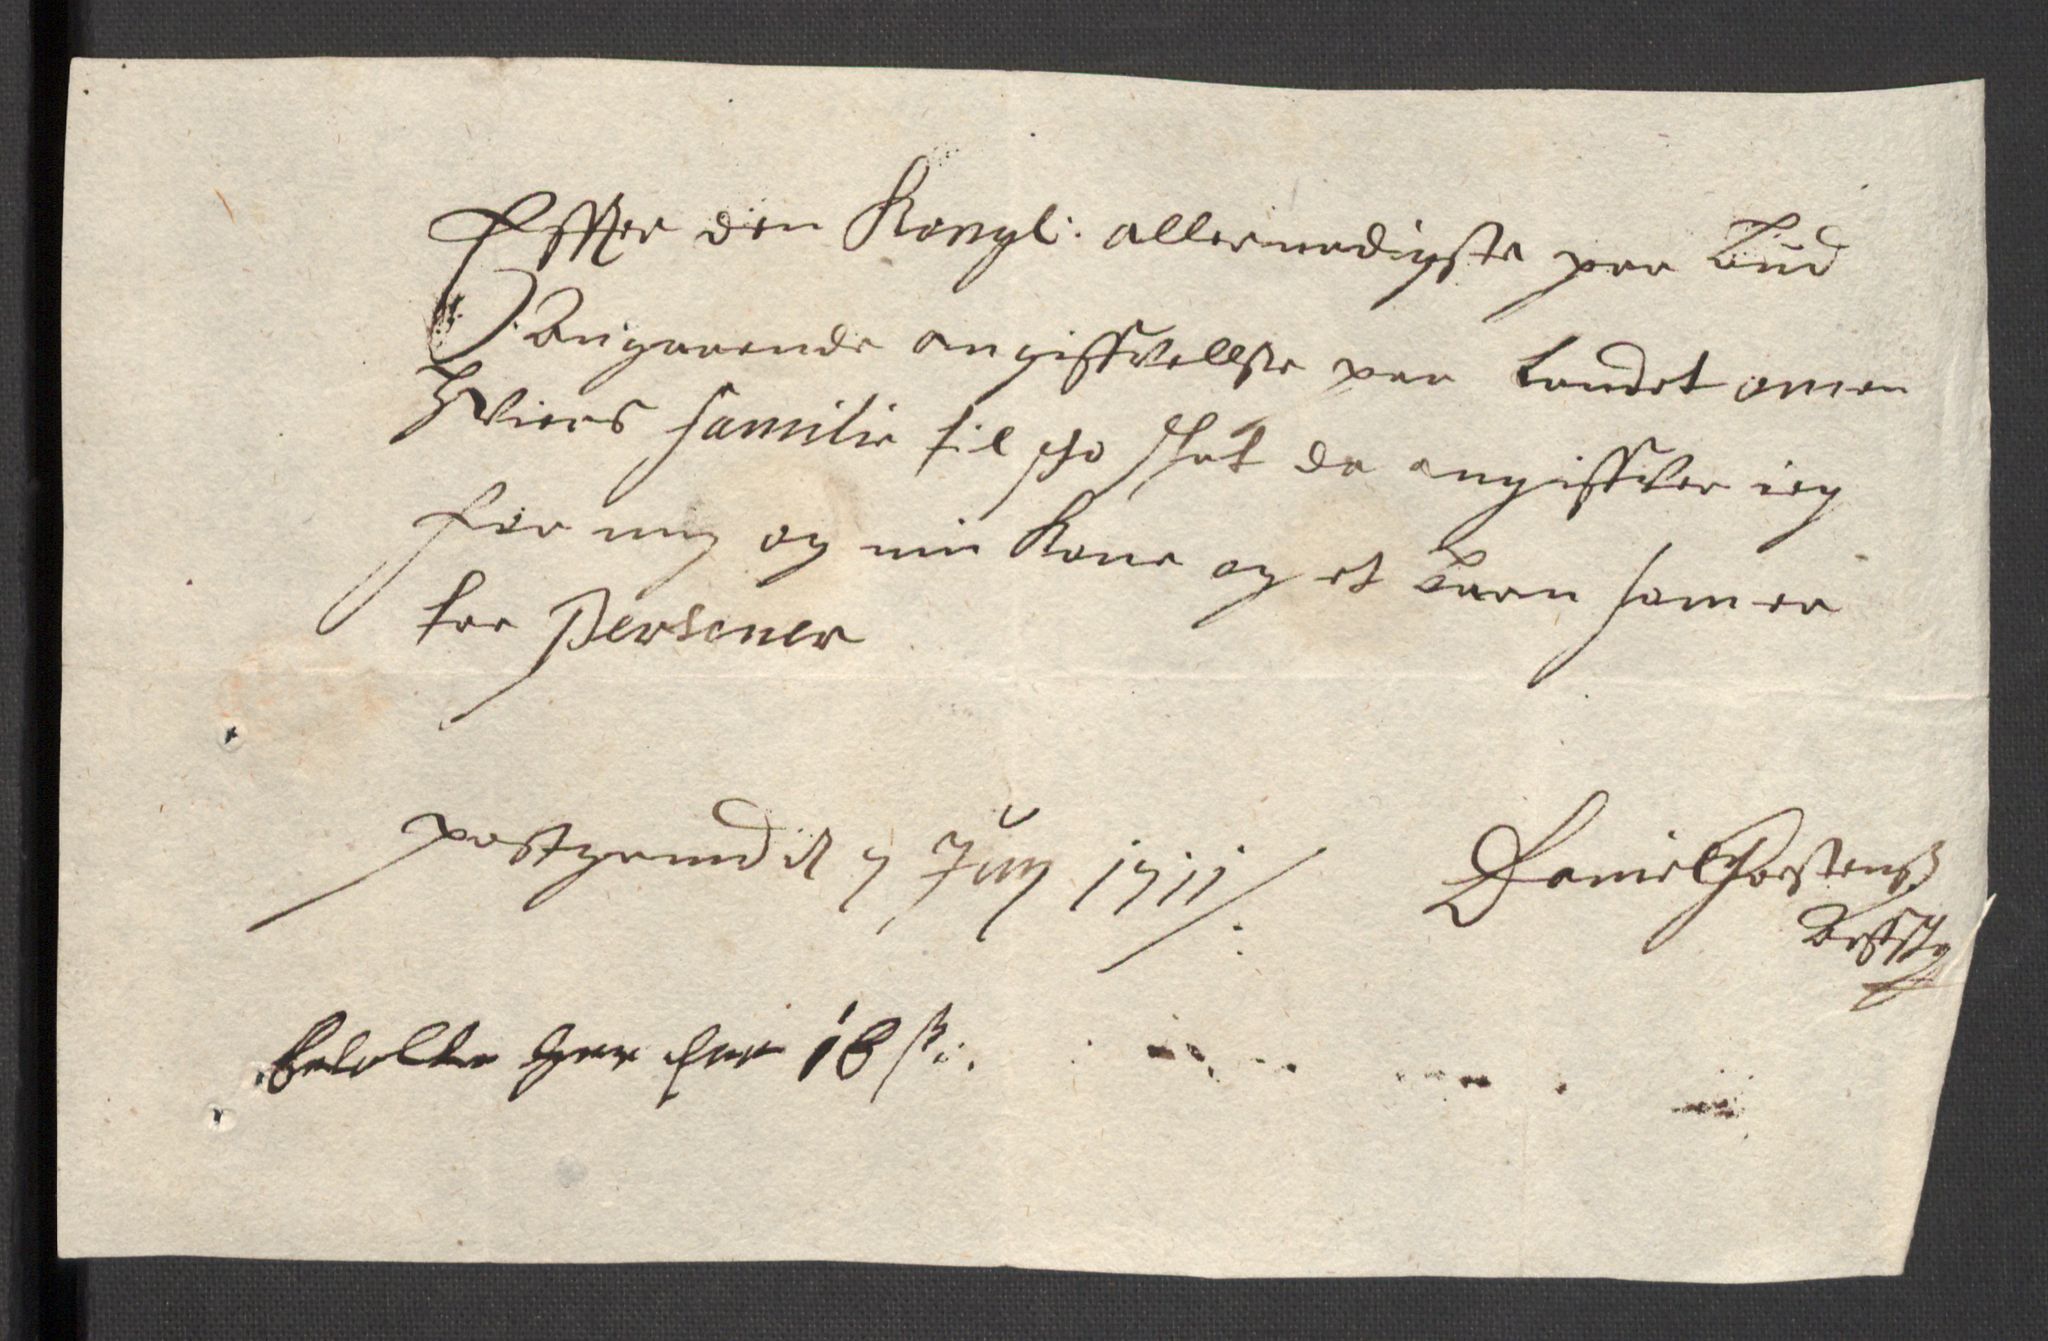 Effter den Kongl: allernadigste paa Bud
Angaaende angiffvellse paa Landet om en
hviers familie til sko skat da angiffver ieg
for mig og min Kone og et Barn som er
tre Personer
postgrund d 7 Juny 1711
Daniel Thorstens
betalte her for 18 s:.